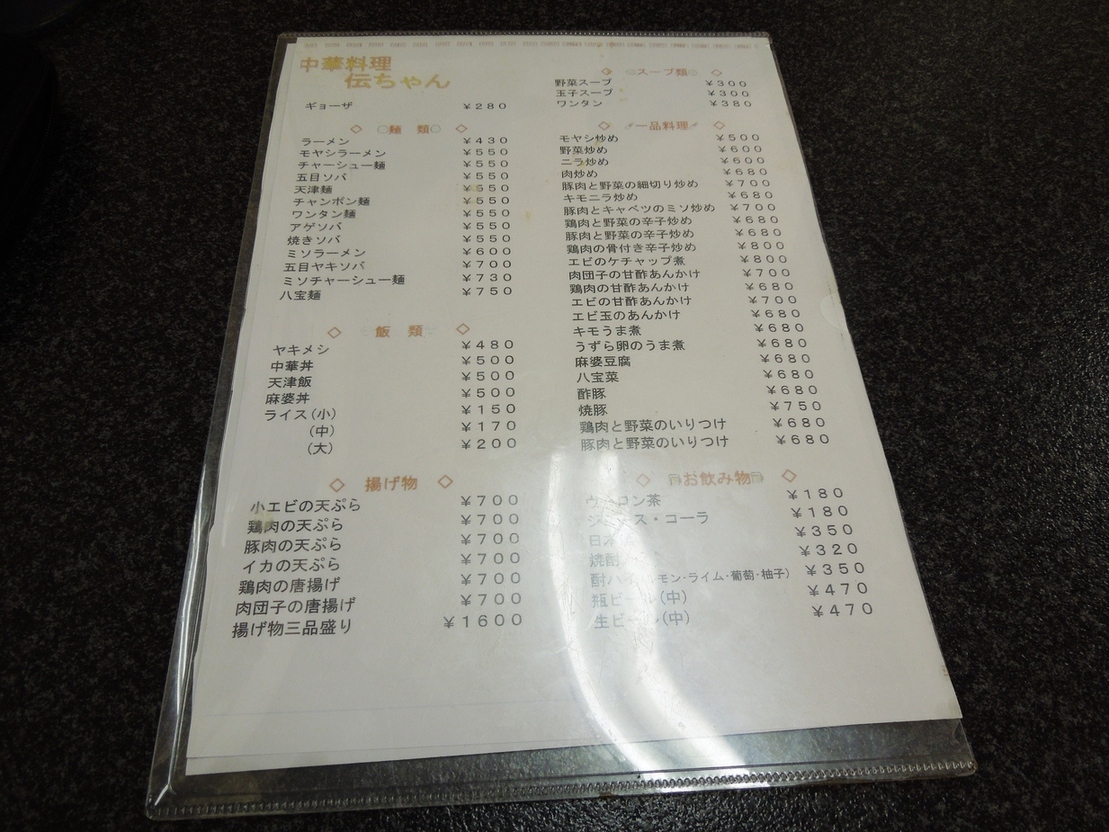 中華料理
伝ちゃん
ギョーザ ¥280
◇ 麺 類 ◇
ラーメン ¥430
モヤシラーメン ¥550
チャーシュー麺 ¥550
五目ソバ ¥550
天津麺 ¥550
チャンポン麺 ¥550
ワンタン麺 ¥550
アゲソバ ¥550
焼きソバ ¥550
ミソラーメン ¥600
五目ヤキソバ ¥700
ミソチャーシュー麺 ¥730
八宝麺 ¥750
◇ 飯 類 ◇
ヤキメシ ¥480
中華丼 ¥500
天津飯 ¥500
麻婆丼 ¥500
ライス(小) ¥150
(中) ¥170
(大) ¥200
◇ 揚げ物 ◇
小エビの天ぷら ¥700
鶏肉の天ぷら ¥700
豚肉の天ぷら ¥700
イカの天ぷら ¥700
鶏肉の唐揚げ ¥700
肉団子の唐揚げ ¥700
揚げ物三品盛り ¥1600
◇ スープ類 ◇
野菜スープ ¥300
玉子スープ ¥300
ワンタン ¥380
◇ 一品料理 ◇
モヤシ炒め ¥500
野菜炒め ¥600
ニラ炒め ¥600
肉炒め ¥680
豚肉と野菜の細切り炒め ¥700
キモニラ炒め ¥680
豚肉とキャベツのミソ炒め ¥700
鶏肉と野菜の辛子炒め ¥680
豚肉と野菜の辛子炒め ¥680
鶏肉の骨付き辛子炒め ¥800
エビのケチャップ煮 ¥800
肉団子の甘酢あんかけ ¥700
鶏肉の甘酢あんかけ ¥680
エビの甘酢あんかけ ¥700
エビ玉のあんかけ ¥680
キモうま煮 ¥680
うずら卵のうま煮 ¥680
麻婆豆腐 ¥680
八宝菜 ¥680
酢豚 ¥680
焼豚 ¥750
鶏肉と野菜のいりつけ ¥680
豚肉と野菜のいりつけ ¥680
◇ お飲み物 ◇
ウーロン茶 ¥180
ジュース・コーラ ¥180
日本酒 ¥350
焼酎 ¥320
酎ハイ(レモン・ライム・葡萄・柚子) ¥350
瓶ビール(中) ¥470
生ビール(中) ¥470